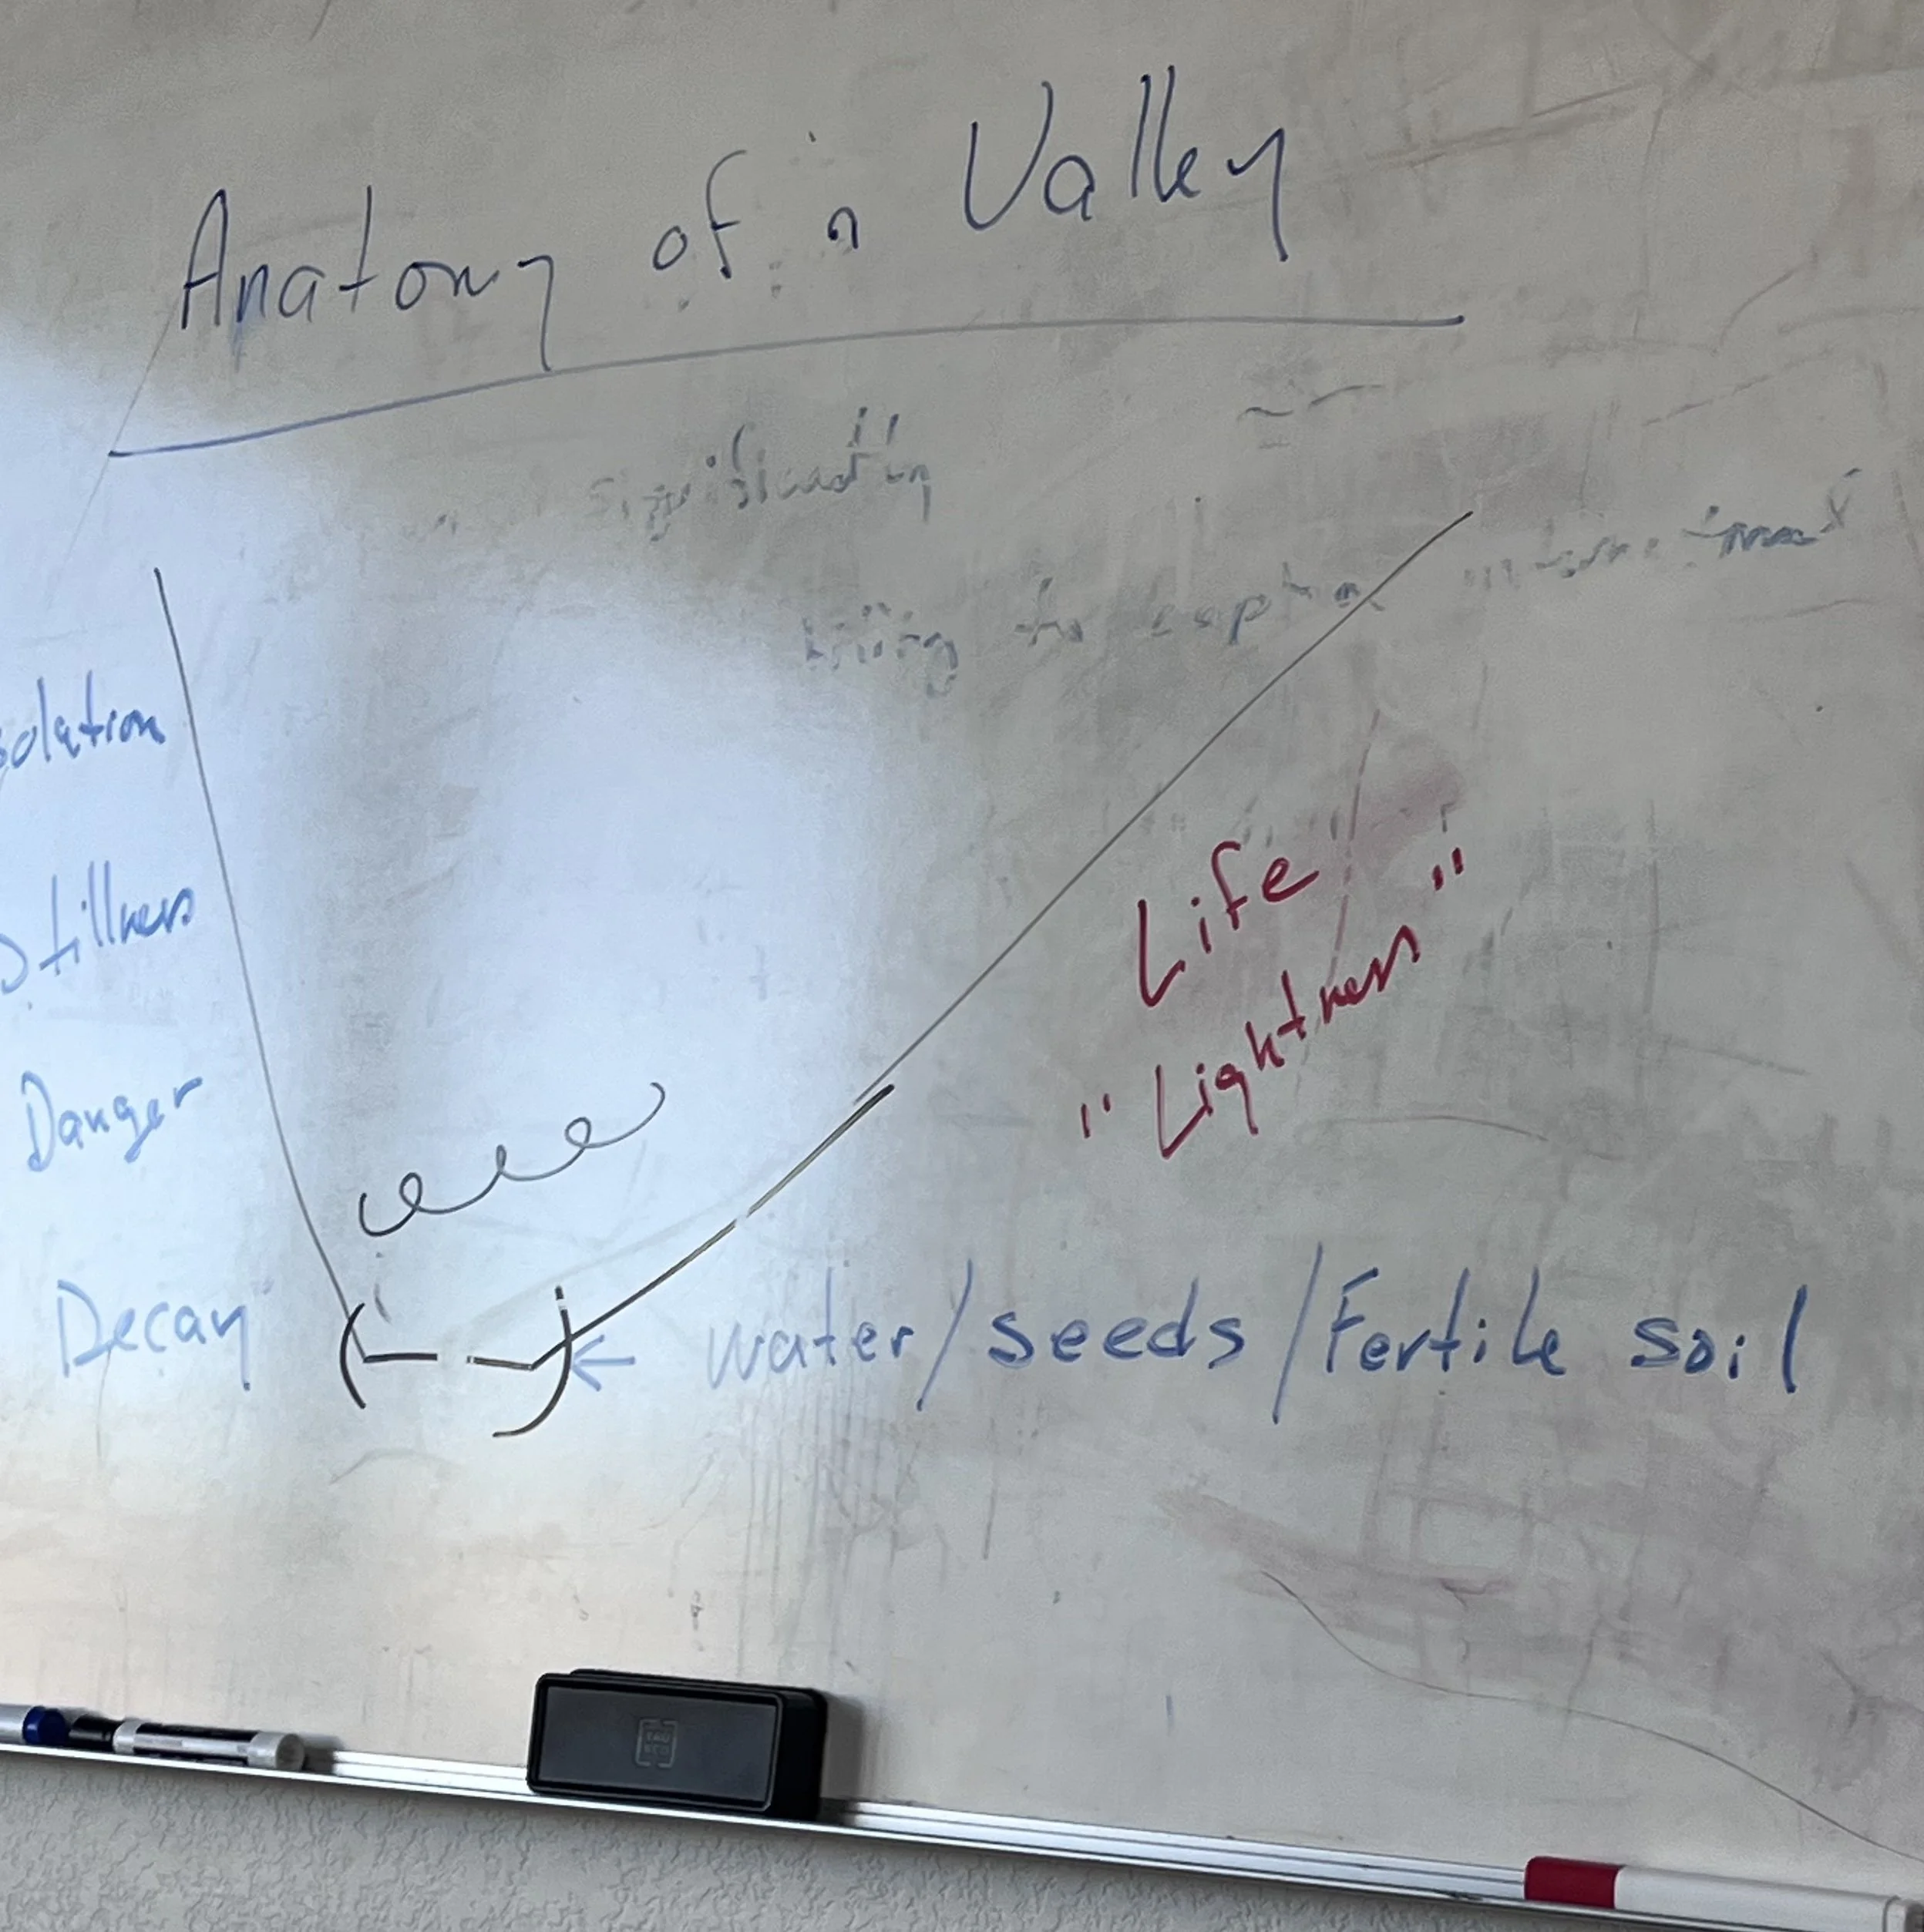 Anatomy of a Valley
solation
Stillness
Danger
Decay
Life
"Lightness"
water/seeds/Fertile soil